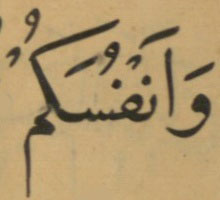 وَاَنْفُسَكُمْ